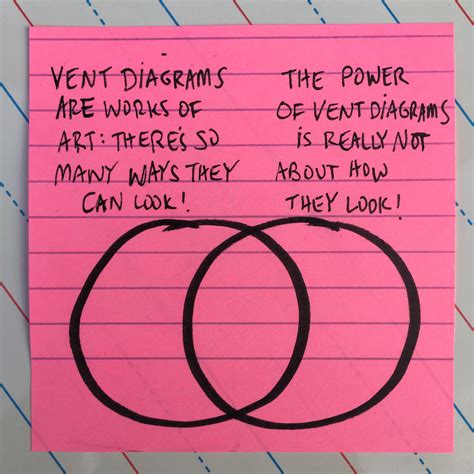 VENT DIAGRAMS
ARE WORKS OF
ART: THERE'S SO
MANY WAYS THEY
CAN LOOK!
THE POWER
OF VENT DIAGRAMS
IS REALLY NOT
ABOUT HOW
THEY LOOK!